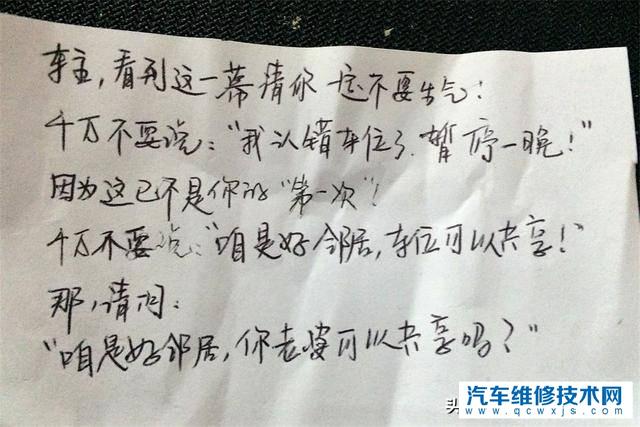 车主,看到这一幕请你一定不要生气!
千万不要说:“我认错车位了,暂停一晚!”
因为这已不是你的“第一次”!
千万不要说:“咱是好邻居,车位可以共享!”
那,请问:
“咱是好邻居,你老婆可以共享吗?”
头
汽车维修技术网
www.qcwxjs.com